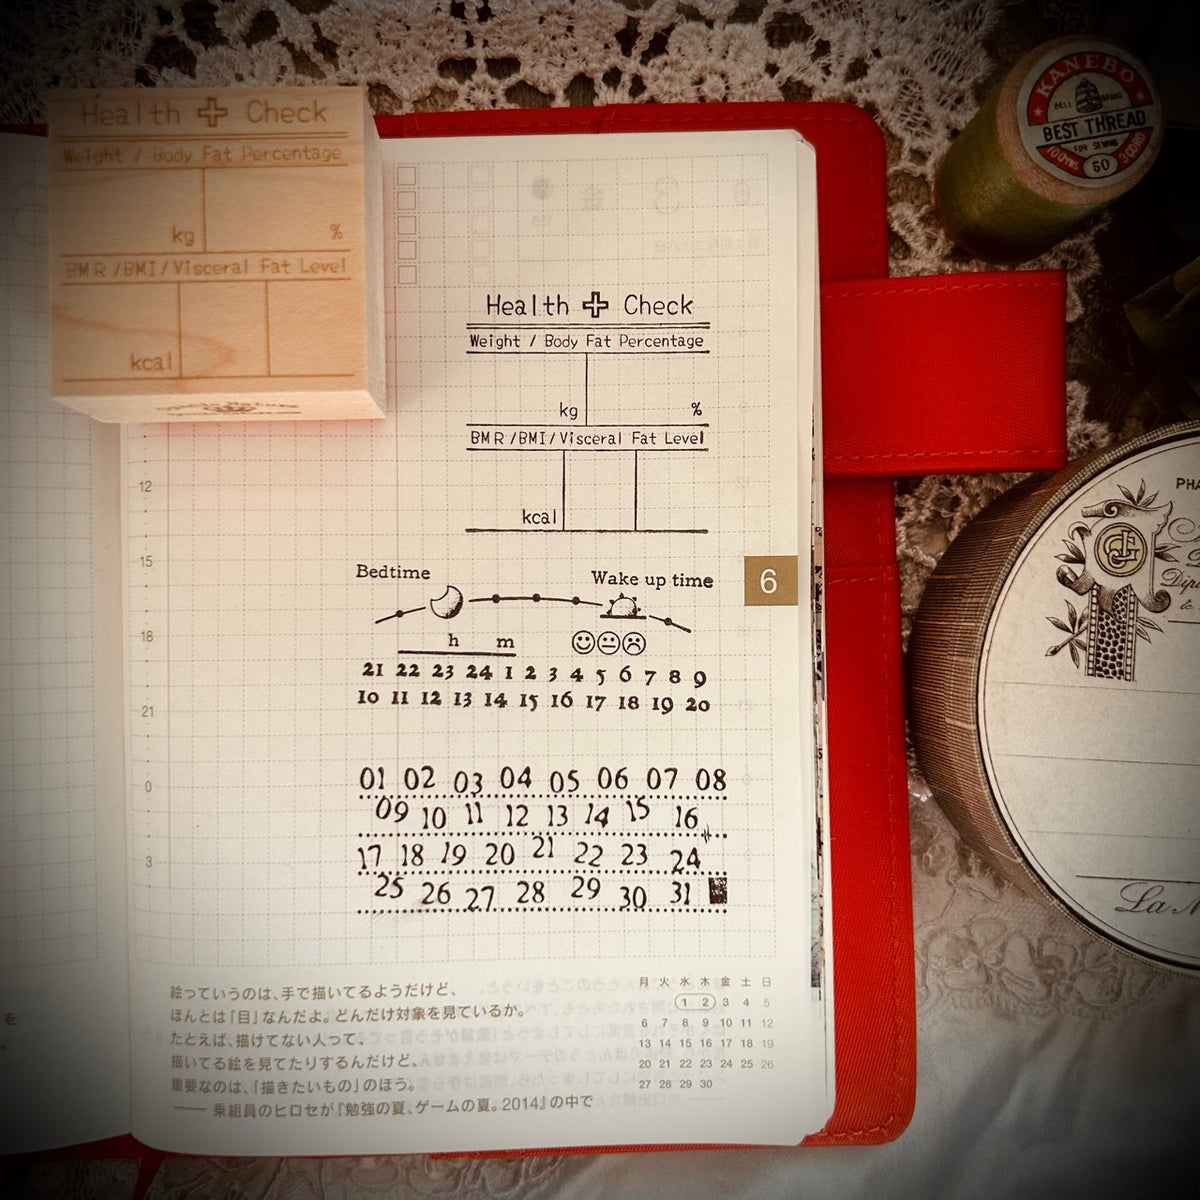 Health ✚ Check
Weight / Body Fat Percentage
kg %
BMR /BMI/Visceral Fat Level
kcal
KANEBO
BELL BRAND
BEST THREAD
FOR SEWING
100YDS 50 3CORD
Health ✚ Check
Weight / Body Fat Percentage
kg %
BMR /BMI/Visceral Fat Level
kcal
12
15
18
21
0
3
6
Bedtime Wake up time
h m
21 22 23 24 1 2 3 4 5 6 7 8 9
10 11 12 13 14 15 16 17 18 19 20
01 02 03 04 05 06 07 08
09 10 11 12 13 14 15 16
17 18 19 20 21 22 23 24
25 26 27 28 29 30 31
PHA
La
を
絵っていうのは、手で描いてるようだけど、
ほんとは「目」なんだよ。どんだけ対象を見ているか。
たとえば、描けてない人って、
描いてる絵を見てたりするんだけど、
重要なのは、「描きたいもの」のほう。
—— 乗組員のヒロセが『勉強の夏、ゲームの夏。2014』の中で
月 火 水 木 金 土 日
1 2 3 4 5
6 7 8 9 10 11 12
13 14 15 16 17 18 19
20 21 22 23 24 25 26
27 28 29 30